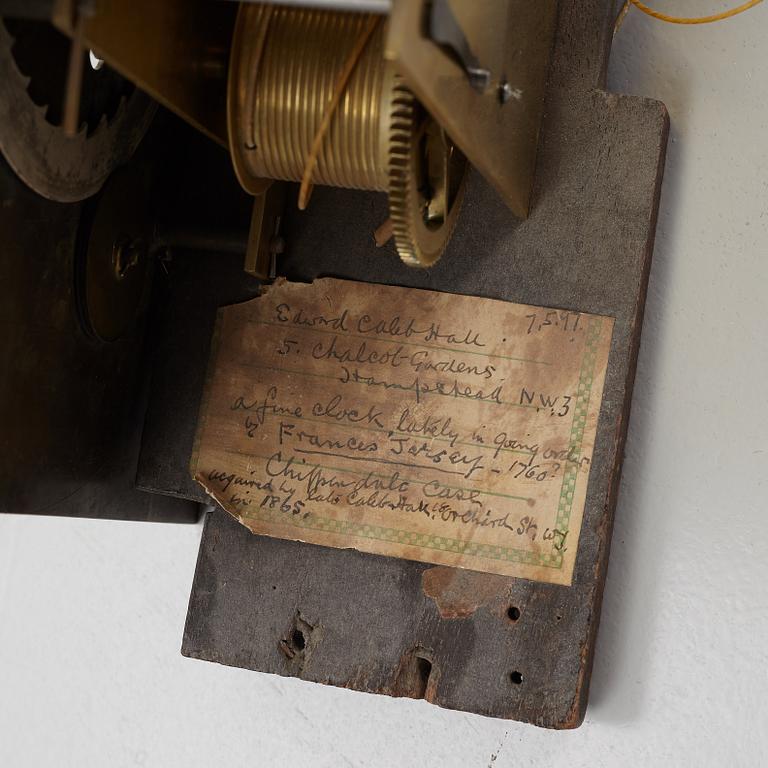 Edward Caleb Hall. 7.5.97.
5. Chalcot Gardens
Hampstead N.W.3
a fine clock, lately in going order
by Frances Jersey - 1760?
Chippendale case
acquired by late Caleb Hall, Orchard St, W1.
in 1865.